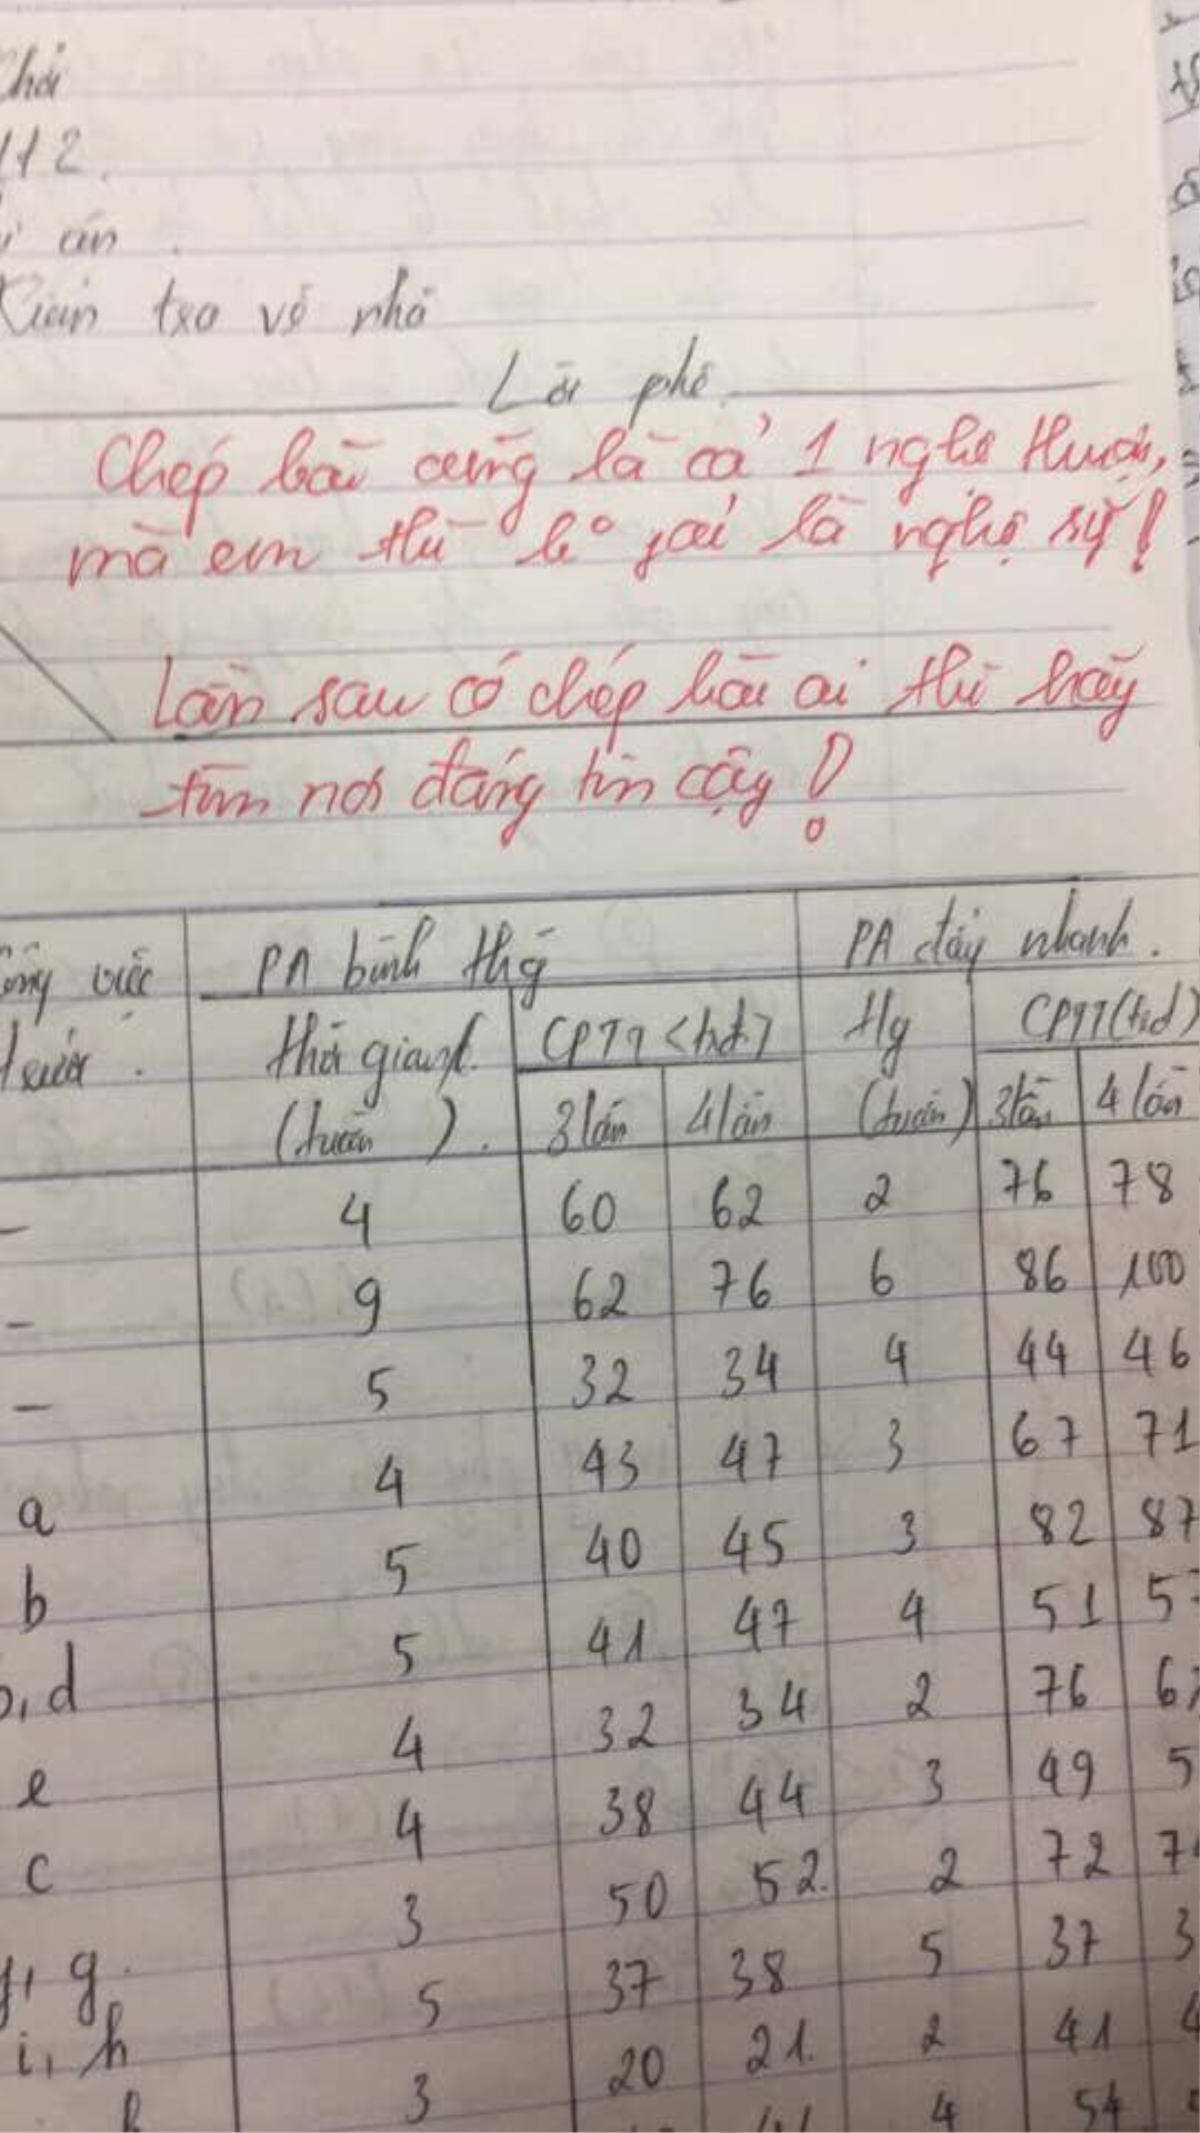 112.
án
về nhà
Lời phê
Chép bài cũng là cả 1 nghệ thuật,
mà em thì ko fải là nghệ sỹ!
Lần sau có chép bài ai thì hãy
tìm nơi đáng tin cậy!
việc PA bình thg PA đẩy nhanh.
trước. Thời gian CPTT (trđ) tg CPTT (trđ)
(tuần). 3 lần 4 lần (tuần) 3 lần 4 lần
- 4 60 62 2 76 78
- 9 62 76 6 86 100
- 5 32 34 4 44 46
a 4 43 47 3 67 71
b 5 40 45 3 82 87
, d 5 41 47 4 51 5
e 4 32 34 2 76 6
c 4 38 44 3 49 5
3 50 52. 2 72 7
, g. 5 37 38 5 37 3
i, h 3 20 21. 2 41 4
4 54